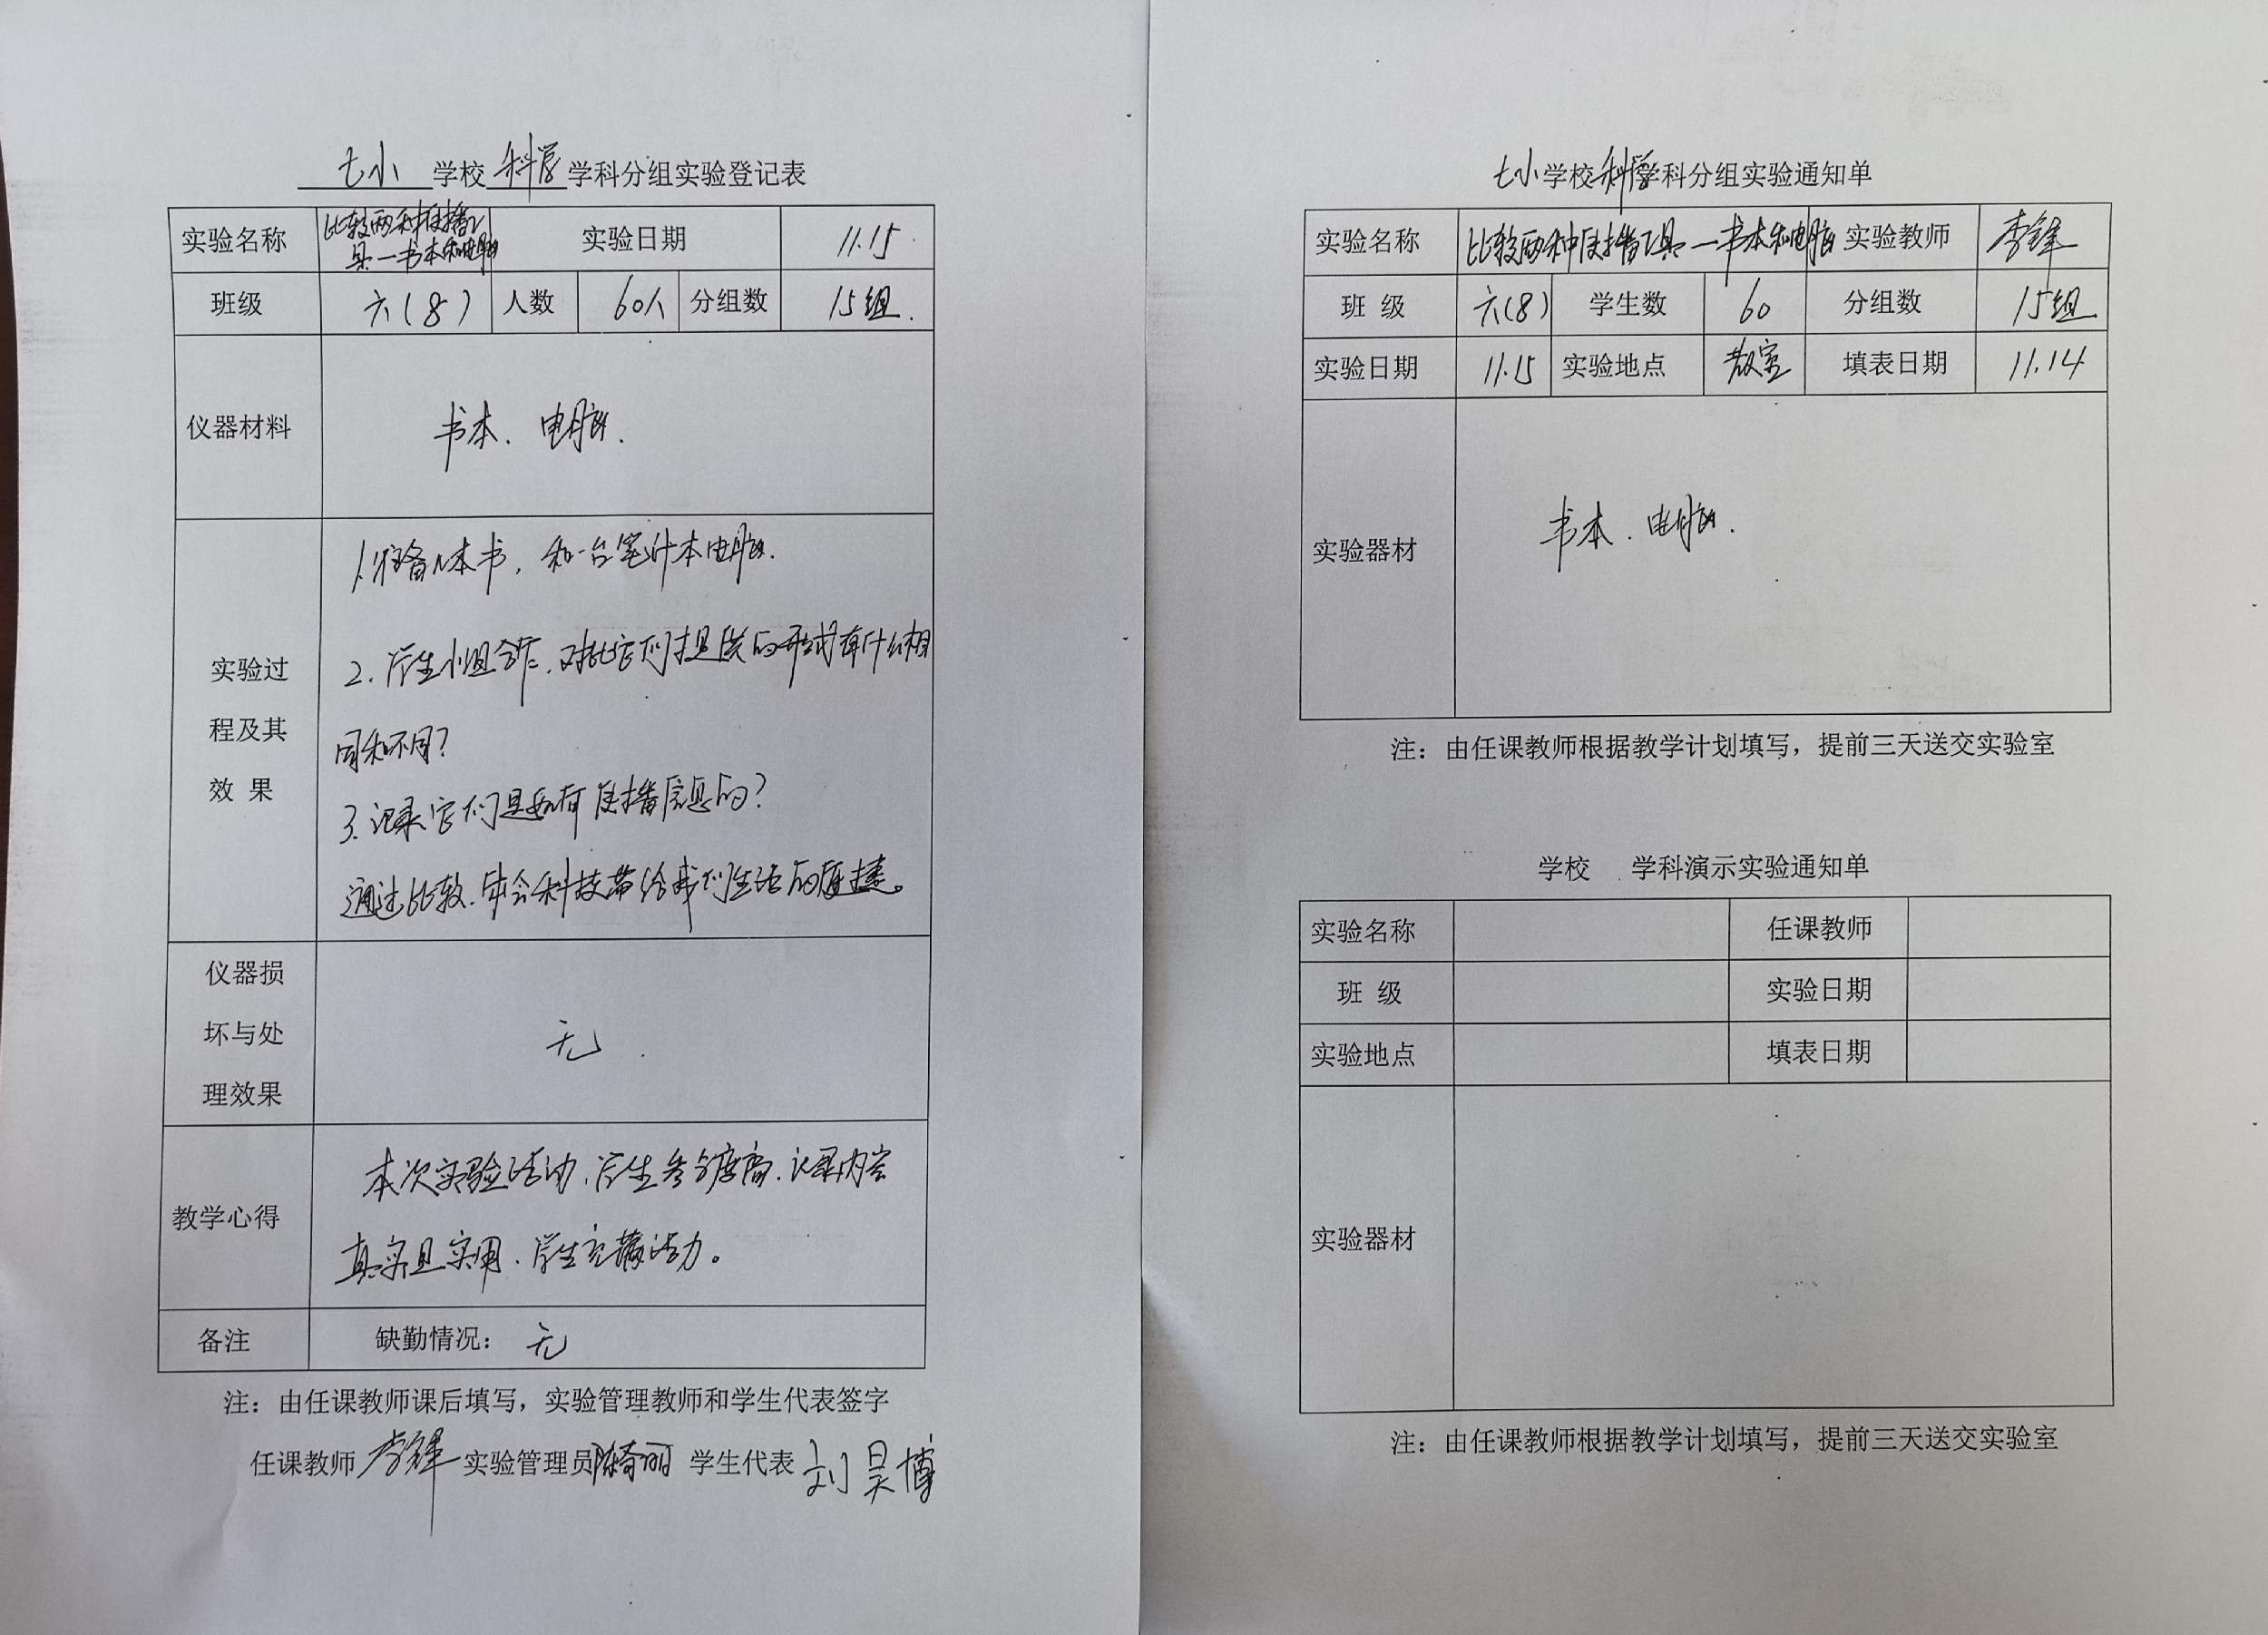 七小 学校 科学 学科分组实验登记表
实验名称 比较两种传播工具—书本和电脑 实验日期 11.15
班级 六(8) 人数 60人 分组数 15组.
仪器材料 书本、电脑.
实验过程及其效果
1.准备几本书，和一台笔计本电脑.
2.学生小组合作、对比它们提供的形式有什么相
同和不同？
3.记录它们是如何传播信息的？
通过比较、体会科技带给我们生活的便捷。
仪器损坏与处理效果 无.
教学心得
本次实验活动、学生参与度高、记录内容
真实且实用、学生充满活力。
备注 缺勤情况：无
注：由任课教师课后填写，实验管理教师和学生代表签字
任课教师 李锋 实验管理员 陈奇丽 学生代表 刘昊博
七小学校科学学科分组实验通知单
实验名称 比较两种传播工具—书本和电脑 实验教师 李锋
班 级 六(8) 学生数 60 分组数 15组
实验日期 11.15 实验地点 教室 填表日期 11.14
实验器材 书本、电脑.
注：由任课教师根据教学计划填写，提前三天送交实验室
学校 学科演示实验通知单
实验名称 任课教师
班 级 实验日期
实验地点 填表日期
实验器材
注：由任课教师根据教学计划填写，提前三天送交实验室